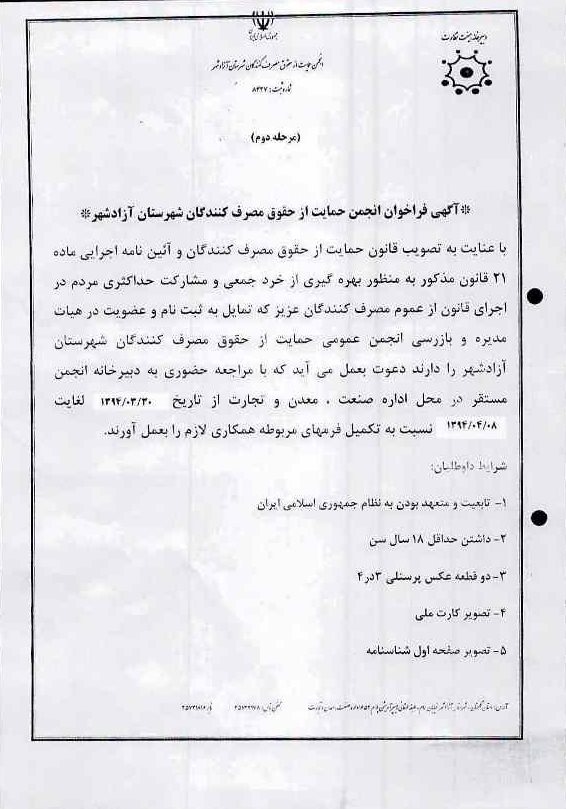 جمهوری اسلامی ایران
انجمن حمایت از حقوق مصرف کنندگان شهرستان آزادشهر
شماره ثبت : ۸۴۲۷
(مرحله دوم)
*آگهی فراخوان انجمن حمایت از حقوق مصرف کنندگان شهرستان آزادشهر*
با عنایت به تصویب قانون حمایت از حقوق مصرف کنندگان و آئین نامه اجرایی ماده
۲۱ قانون مذکور به منظور بهره گیری از خرد جمعی و مشارکت حداکثری مردم در
اجرای قانون از عموم مصرف کنندگان عزیز که تمایل به ثبت نام و عضویت در هیات
مدیره و بازرسی انجمن عمومی حمایت از حقوق مصرف کنندگان شهرستان
آزادشهر را دارند دعوت بعمل می آید که با مراجعه حضوری به دبیرخانه انجمن
مستقر در محل اداره صنعت ، معدن و تجارت از تاریخ ۱۳۹۴/۰۳/۳۰ لغایت
۱۳۹۴/۰۴/۰۸ نسبت به تکمیل فرمهای مربوطه همکاری لازم را بعمل آورند.
شرایط داوطلبان:
۱- تابعیت و متعهد بودن به نظام جمهوری اسلامی ایران
۲- داشتن حداقل ۱۸ سال سن
۳-دو قطعه عکس پرسنلی ۳در۴
۴- تصویر کارت ملی
۵- تصویر صفحه اول شناسنامه